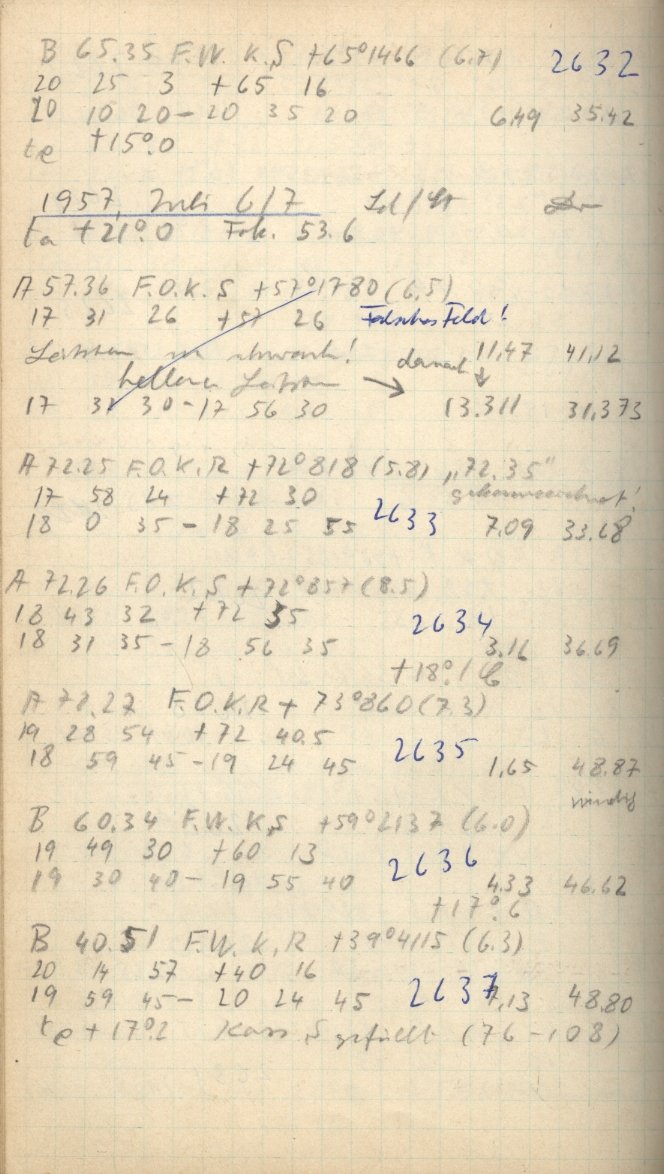 B 65.35 F.W. K.S +65°1466 (6.7) 2632
20 25 3 +65 16
20 10 20 - 20 35 20 6.49 35.42
te +15°.0
1957, Juli 6/7
ta +21°.0 Fok. 53.6
A 57.36 F.O.K.S +57°1780 (6,5)
17 31 26 +57 26 Falsches Feld!
zu schwach! danach 11,47 41,12
heller
17 31 30 - 17 56 30 13.311 31,373
A 72.25 F.O.K.R +72°818 (5.8) „72.35"
17 58 24 +72 30 gekennzeichnet!
18 0 35 - 18 25 55 2633 7.09 33.68
A 72.26 F.O.K.S +72°857 (8.5)
18 43 32 +72 35 2634
18 31 35 - 18 56 35 3.16 36.69
+18°.1
A 72.27 F.O.K.R + 73°860 (7.3)
19 28 54 +72 40.5 2635
18 59 45 - 19 24 45 1,65 48.87
windig
B 60.34 F.W. K,S +59°2137 (6.0)
19 49 30 +60 13 2636
19 30 40 - 19 55 40 4.33 46.62
+17°.6
B 40.51 F.W. K,R +39°4115 (6.3)
20 14 57 +40 16
19 59 45 - 20 24 45 2637 48.80
te +17°.2 Kass. S gefüllt (76-108)